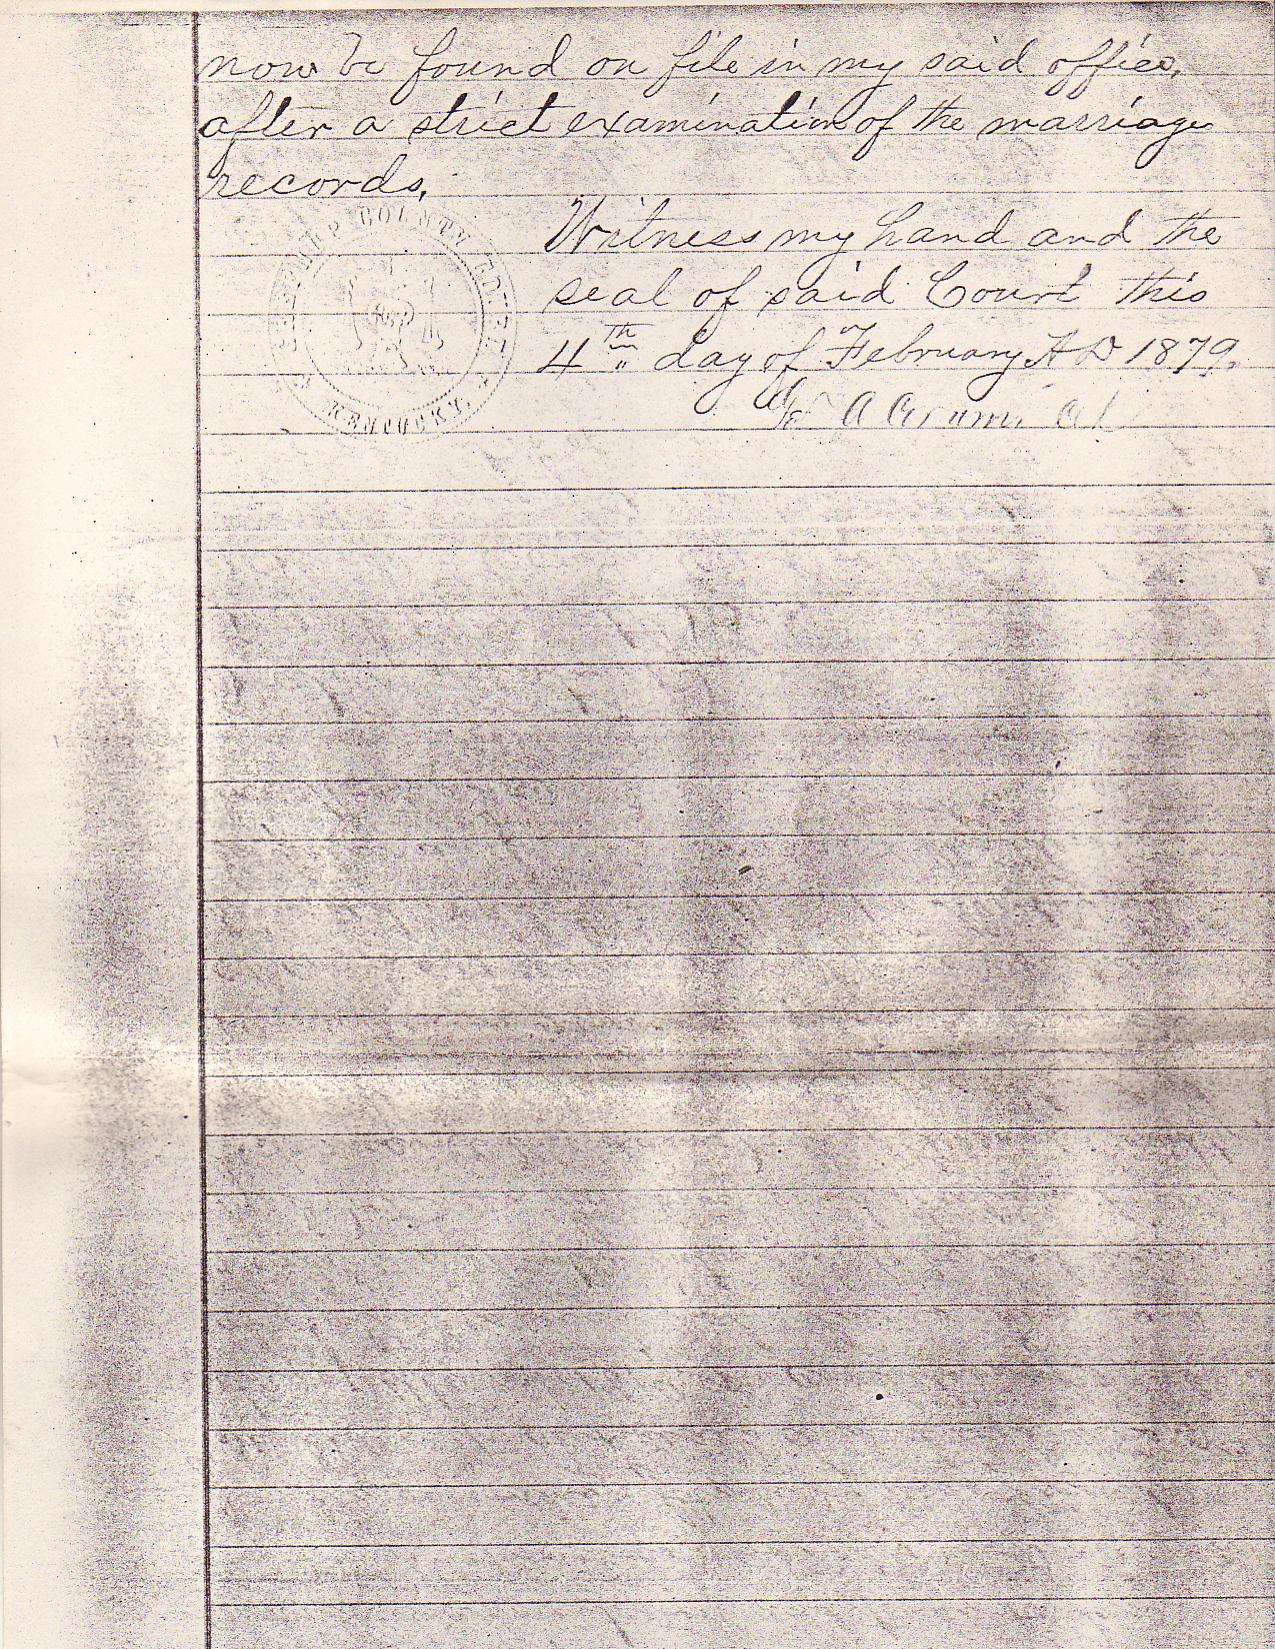 now be found on file in my said office,
after a strict examination of the marriage
records.
Witness my hand and the
seal of said Court this
4th day of February AD 1879.
COUNTY
KENTUCKY.